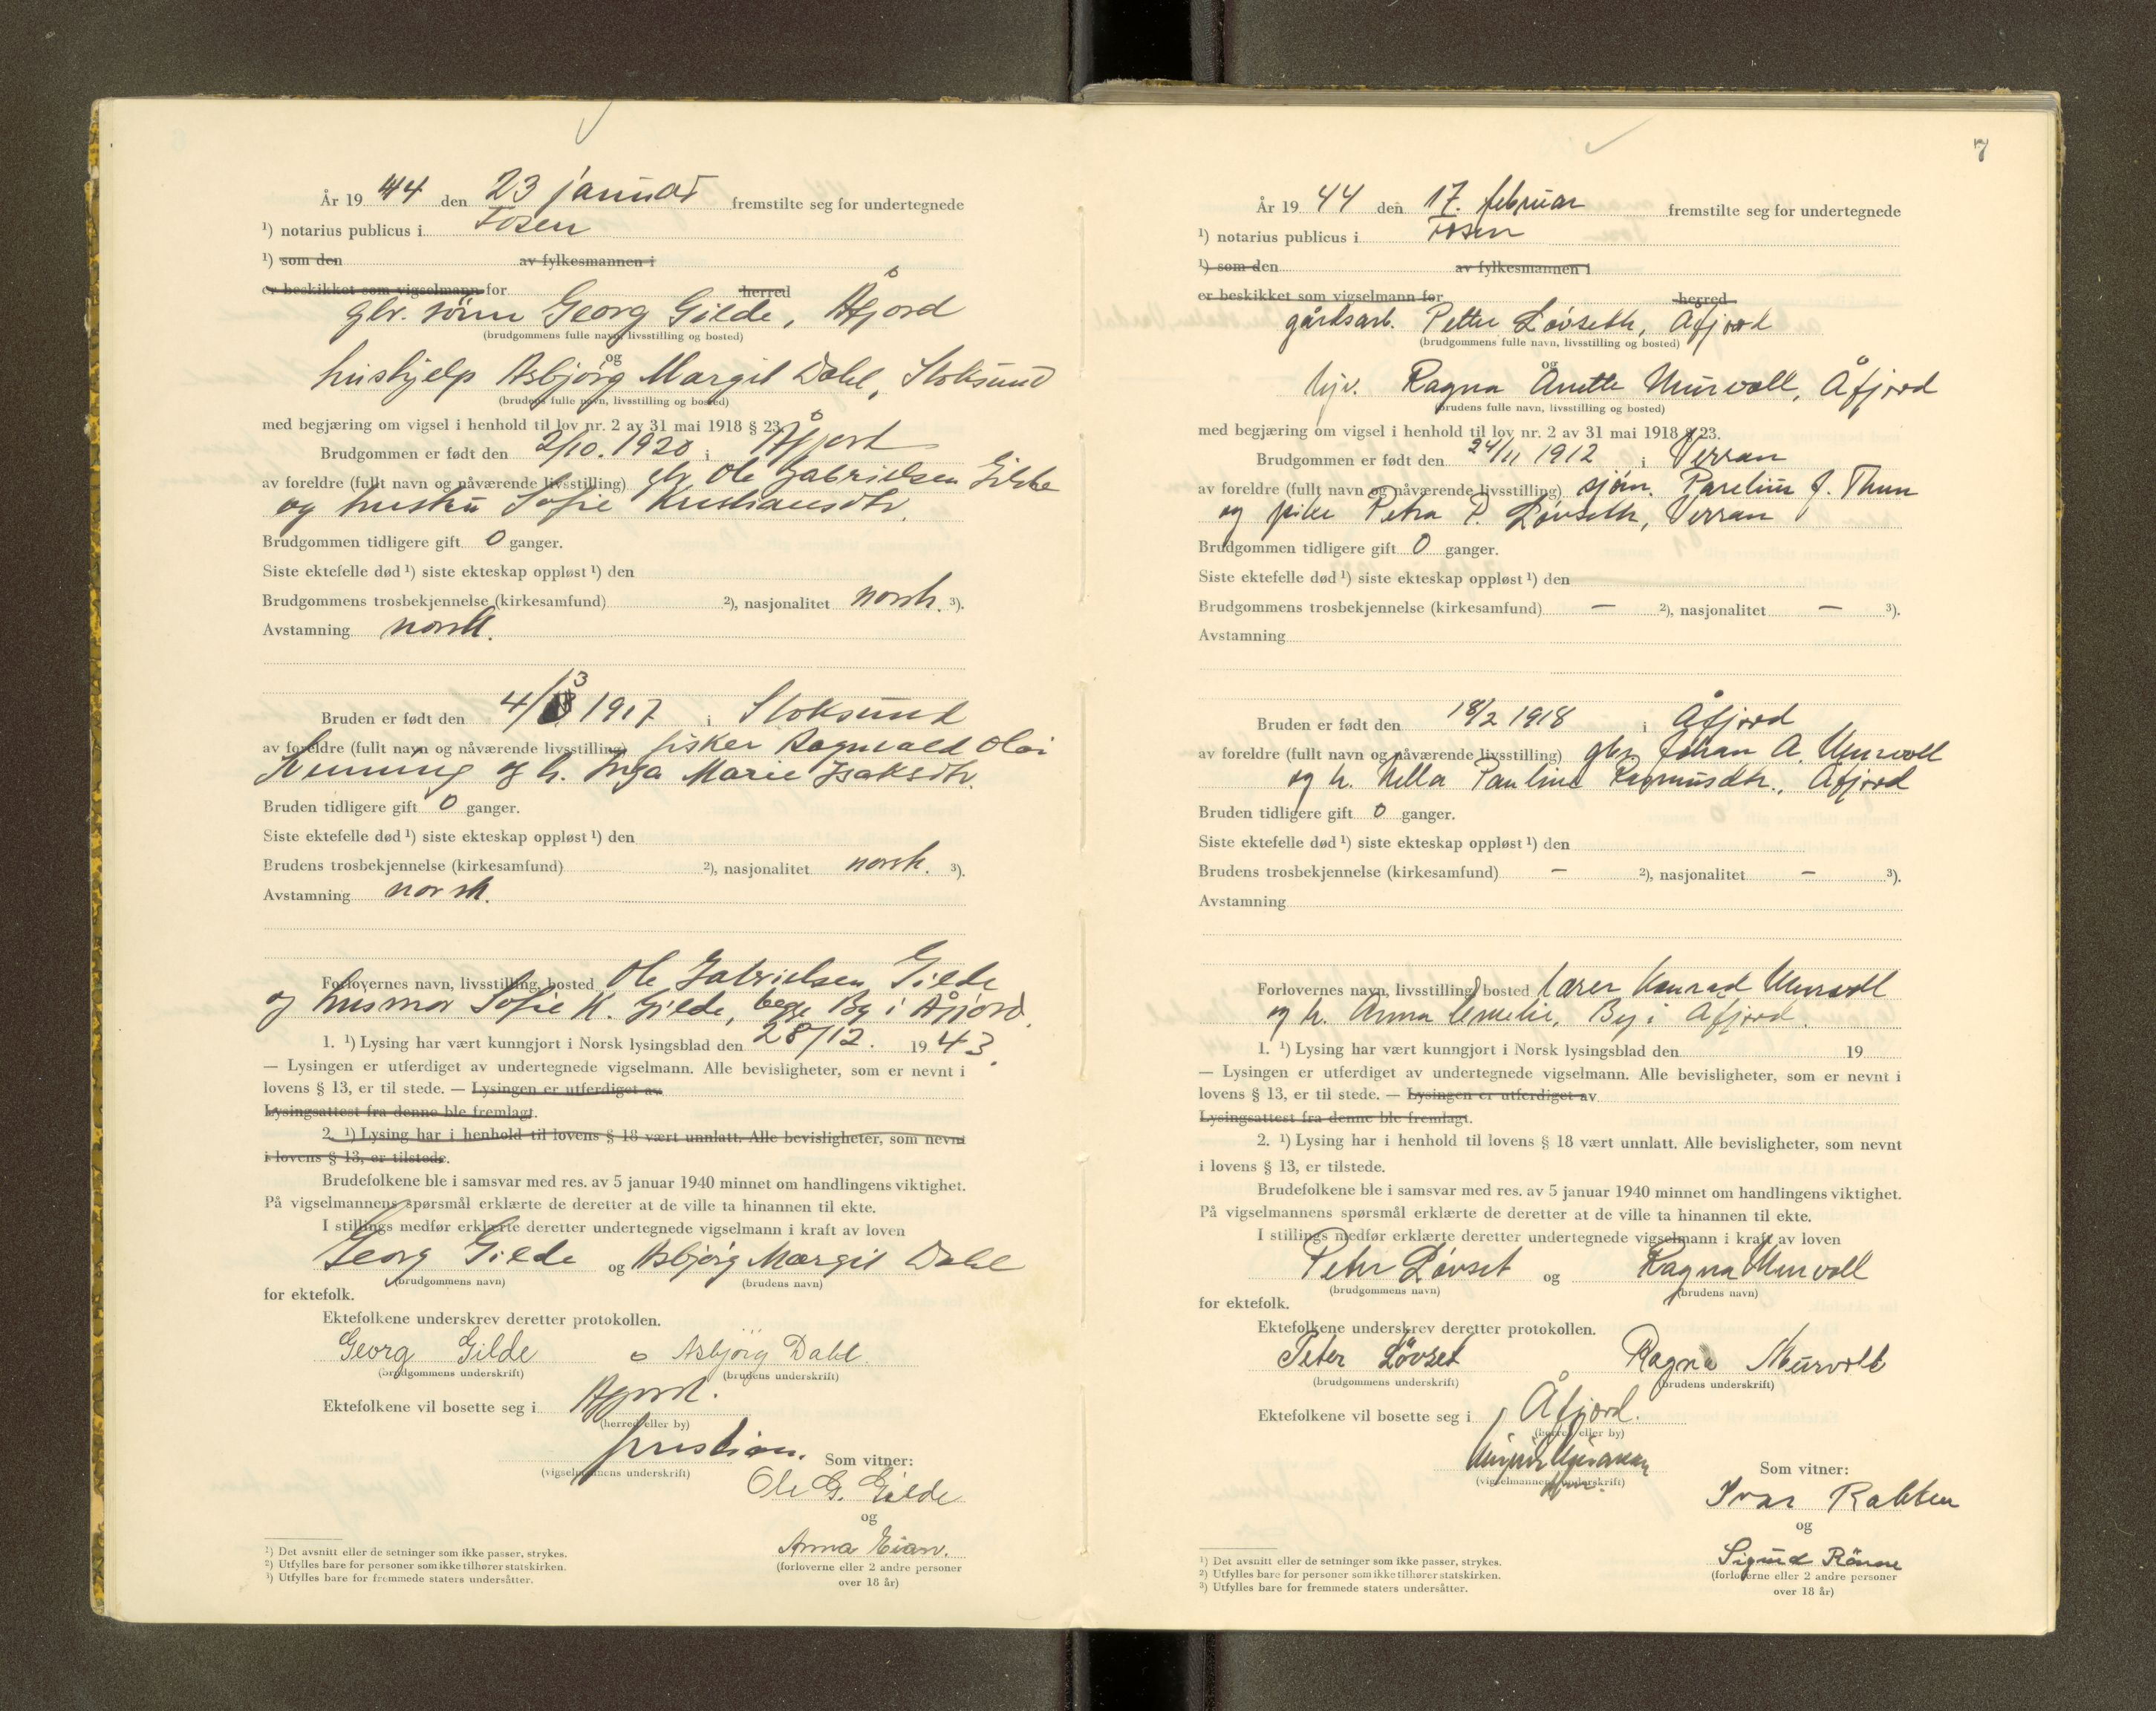 År 19 44 den 23 januar fremstilte seg for undertegnede
¹) notarius publicus i Fosen
¹) som den av fylkesmannen i
er beskikket som vigselmann for herred
gbr. sønn Georg Gilde, Åfjord
(brudgommens fulle navn, livsstilling og bosted)
og
hushjelp Asbjørg Margit Dahl, Stoksund
(brudens fulle navn, livsstilling og bosted)
med begjæring om vigsel i henhold til lov nr. 2 av 31 mai 1918 § 23.
Brudgommen er født den 2/10. 1920 i Åfjord
av foreldre (fullt navn og nåværende livsstilling) gbr Ole Gabrielsen Gilde
og hustru Sofie Kristiansdtr.
Brudgommen tidligere gift 0 ganger.
Siste ektefelle død ¹) siste ekteskap oppløst ¹) den
Brudgommens trosbekjennelse (kirkesamfund) ²), nasjonalitet norsk. ³).
Avstamning norsk.
Bruden er født den 4/3 1917 i Stoksund
av foreldre (fullt navn og nåværende livsstilling) fisker Ragnvald Olai
Henning og h. Inga Marie Isaksdtr.
Bruden tidligere gift 0 ganger.
Siste ektefelle død ¹) siste ekteskap oppløst ¹) den
Brudens trosbekjennelse (kirkesamfund) ²), nasjonalitet norsk. ³).
Avstamning norsk.
Forlovernes navn, livsstilling, bosted Ole Gabrielsen Gilde
og husmor Sofie K. Gilde, begge By i Åfjord.
1. ¹) Lysing har vært kunngjort i Norsk lysingsblad den 28/12. 19 43.
— Lysingen er utferdiget av undertegnede vigselmann. Alle bevisligheter, som er nevnt i
lovens § 13, er til stede. — Lysingen er utferdiget av
Lysingsattest fra denne ble fremlagt.
2. ¹) Lysing har i henhold til lovens § 18 vært unnlatt. Alle bevisligheter, som nevnt
i lovens § 13, er tilstede.
Brudefolkene ble i samsvar med res. av 5 januar 1940 minnet om handlingens viktighet.
På vigselmannens spørsmål erklærte de deretter at de ville ta hinannen til ekte.
I stillings medfør erklærte deretter undertegnede vigselmann i kraft av loven
Georg Gilde og Asbjørg Margit Dahl
(brudgommens navn) (brudens navn)
for ektefolk.
Ektefolkene underskrev deretter protokollen.
Georg Gilde o Asbjörg Dahl.
(brudgommens underskrift) (brudens underskrift)
Ektefolkene vil bosette seg i Åfjord.
(herred eller by)
Som vitner:
(vigselmannens underskrift)
Ole G. Gilde
og
Anna Eian.
(forloverne eller 2 andre personer
over 18 år)
¹) Det avsnitt eller de setninger som ikke passer, strykes.
²) Utfylles bare for personer som ikke tilhører statskirken.
³) Utfylles bare for fremmede staters undersåtter.
7
År 19 44 den 17. februar fremstilte seg for undertegnede
¹) notarius publicus i Fosen
¹) som den av fylkesmannen i
er beskikket som vigselmann for herred
gårdsarb. Petter Løvseth, Åfjord
(brudgommens fulle navn, livsstilling og bosted)
og
hjv. Ragna Anette Murvoll, Åfjord
(brudens fulle navn, livsstilling og bosted)
med begjæring om vigsel i henhold til lov nr. 2 av 31 mai 1918 § 23.
Brudgommen er født den 24/11 1912 i Verran
av foreldre (fullt navn og nåværende livsstilling) sjøm. Parelius J. Thun
og pike Petra P. Løvseth, Verran
Brudgommen tidligere gift 0 ganger.
Siste ektefelle død ¹) siste ekteskap oppløst ¹) den
Brudgommens trosbekjennelse (kirkesamfund) — ²), nasjonalitet — ³).
Avstamning
Bruden er født den 18/2 1918 i Åfjord
av foreldre (fullt navn og nåværende livsstilling) gbr. Johan A. Murvoll
og h. Pauline Rasmusdtr., Åfjord
Bruden tidligere gift 0 ganger.
Siste ektefelle død ¹) siste ekteskap oppløst ¹) den
Brudens trosbekjennelse (kirkesamfund) — ²), nasjonalitet — ³).
Avstamning
Forlovernes navn, livsstilling, bosted lærer Konrad Murvoll
og h. Anna Emelie, By i Åfjord.
1. ¹) Lysing har vært kunngjort i Norsk lysingsblad den 19
— Lysingen er utferdiget av undertegnede vigselmann. Alle bevisligheter, som er nevnt i
lovens § 13, er til stede. — Lysingen er utferdiget av
Lysingsattest fra denne ble fremlagt.
2. ¹) Lysing har i henhold til lovens § 18 vært unnlatt. Alle bevisligheter, som nevnt
i lovens § 13, er tilstede.
Brudefolkene ble i samsvar med res. av 5 januar 1940 minnet om handlingens viktighet.
På vigselmannens spørsmål erklærte de deretter at de ville ta hinannen til ekte.
I stillings medfør erklærte deretter undertegnede vigselmann i kraft av loven
Peter Løvset og Ragna Murvoll
(brudgommens navn) (brudens navn)
for ektefolk.
Ektefolkene underskrev deretter protokollen.
Peter Løvset Ragna Murvoll
(brudgommens underskrift) (brudens underskrift)
Ektefolkene vil bosette seg i Åfjord.
(herred eller by)
Som vitner:
(vigselmannens underskrift)
Ivar Rabben
og
Sigurd Rönne
(forloverne eller 2 andre personer
over 18 år)
¹) Det avsnitt eller de setninger som ikke passer, strykes.
²) Utfylles bare for personer som ikke tilhører statskirken.
³) Utfylles bare for fremmede staters undersåtter.